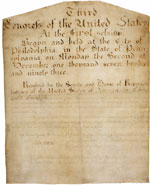 Third
Congress of the United States
At the first session
Begun and held at the City of
Philadelphia, in the State of Penn
sylvania on Monday the Second of
December one thousand seven hundred
and ninety three.
Resolved by the Senate and House of Repre
sentatives of the United States of America in